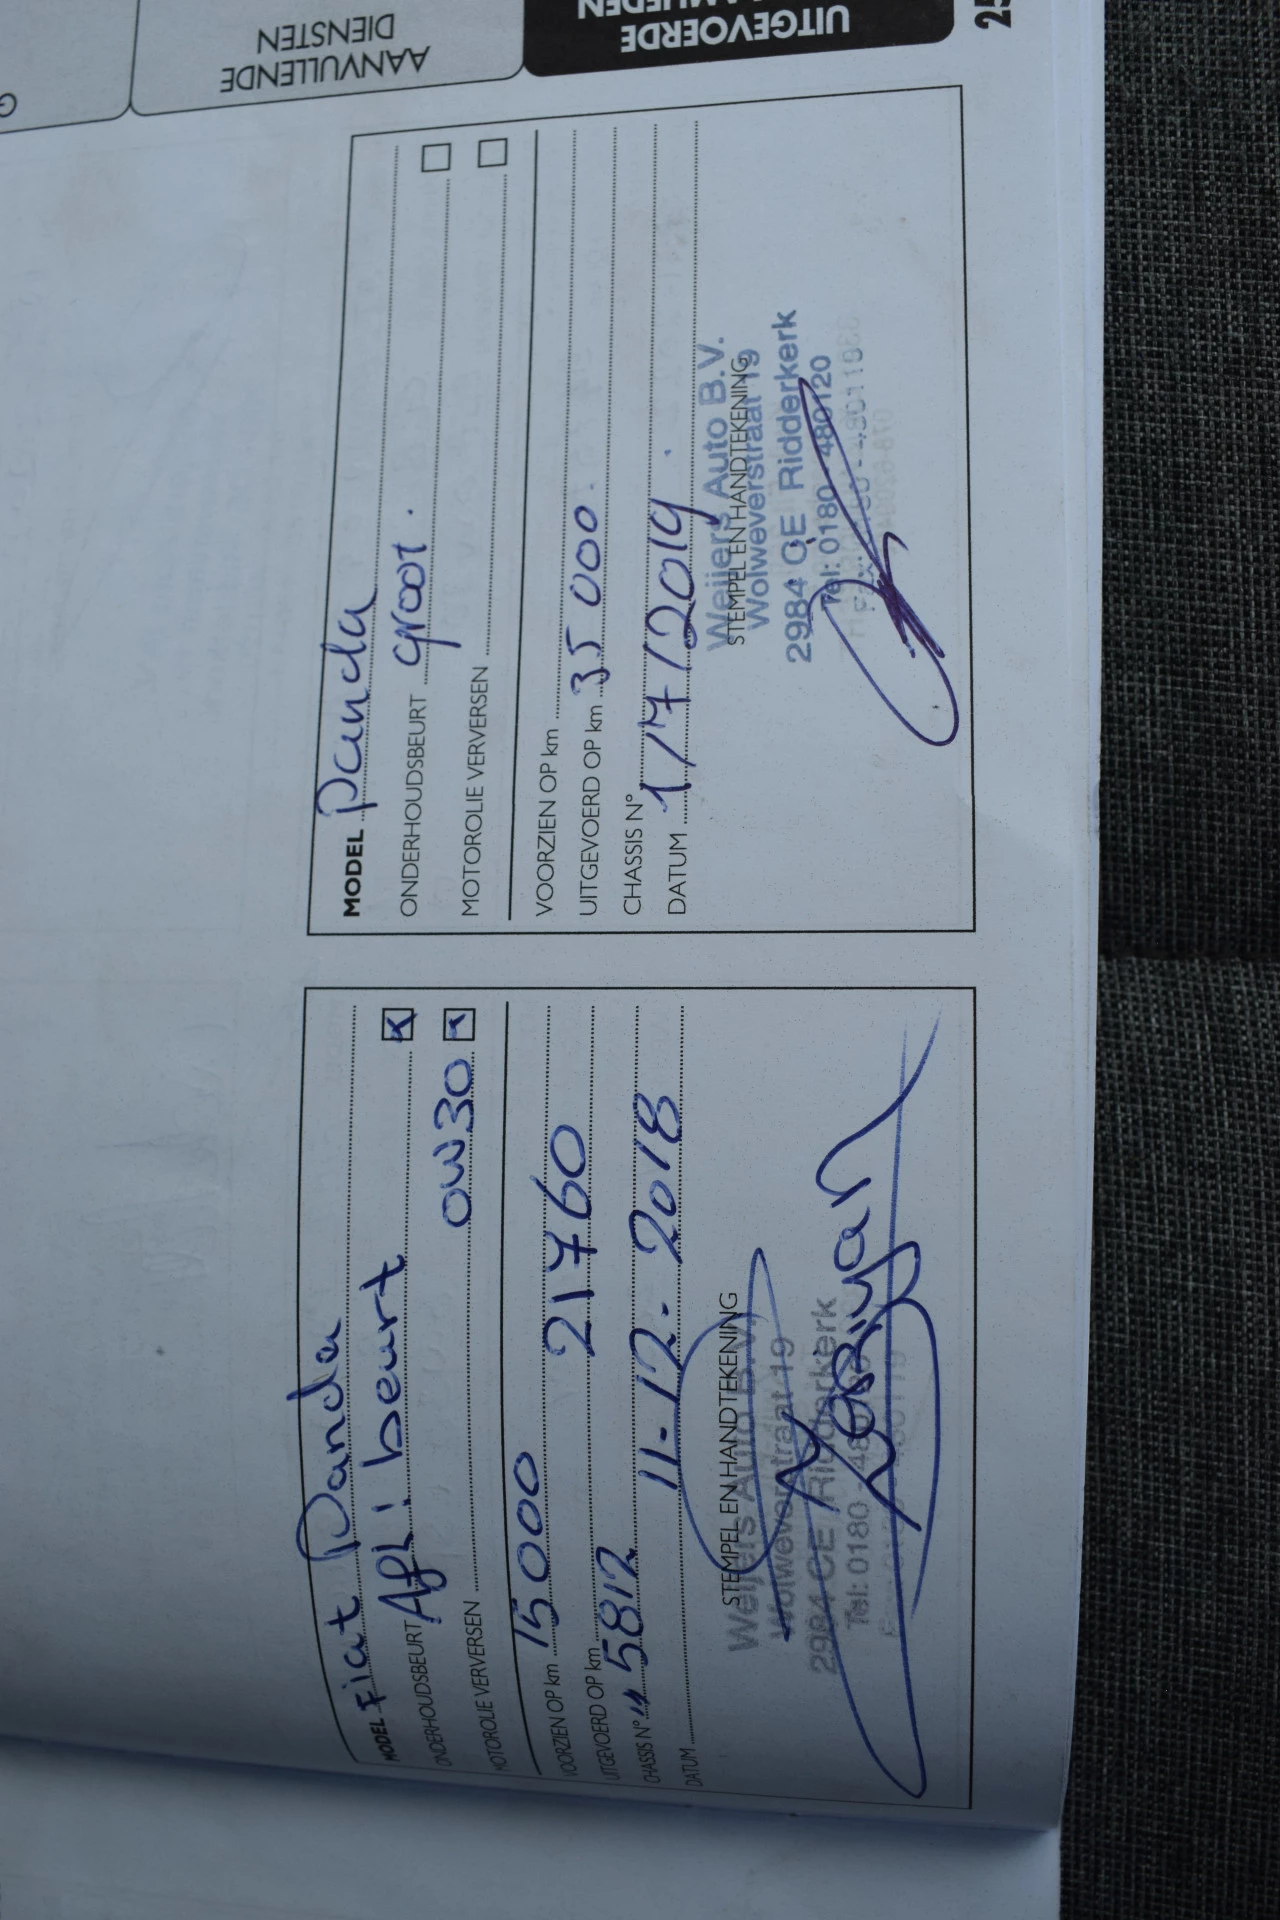 AANVULLENDE
DIENSTEN
UITGEVOERDE
25
MODEL Fiat Panda
ONDERHOUDSBEURT Afl! beurt
MOTOROLIE VERVERSEN 0W30
VOORZIEN OP km 15000
UITGEVOERD OP km 21760
CHASSIS N° 5812
DATUM 11-12-2018
STEMPEL EN HANDTEKENING
Weijers Auto B.V.
Wolweverstraat 19
2984 CE Ridderkerk
Tel: 0180 - 480120
MODEL Panda
ONDERHOUDSBEURT groot.
MOTOROLIE VERVERSEN
VOORZIEN OP km
UITGEVOERD OP km 35000.
CHASSIS N°
DATUM 1/7/2019.
STEMPEL EN HANDTEKENING
Weijers Auto B.V.
Wolweverstraat 19
2984 CE Ridderkerk
Tel: 0180 - 480120